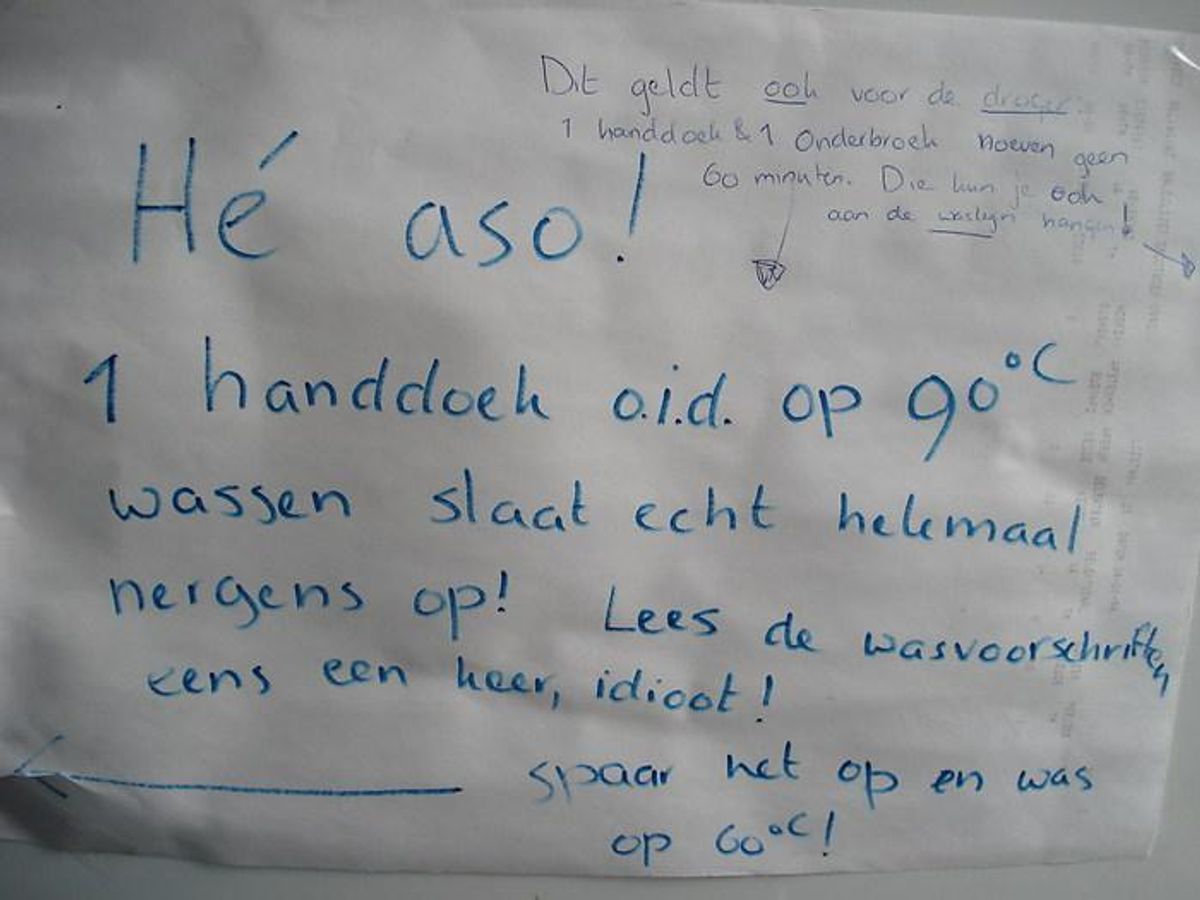 Dit geldt ook voor de droger.
1 handdoek & 1 Onderbroek hoeven geen
60 minuten. Die kun je ook
aan de waslijn hangen!
Hé aso!
1 handdoek o.i.d. op 90°C
wassen slaat echt helemaal
nergens op! Lees de wasvoorschriften
eens een keer, idioot!
spaar het op en was
op 60°C!